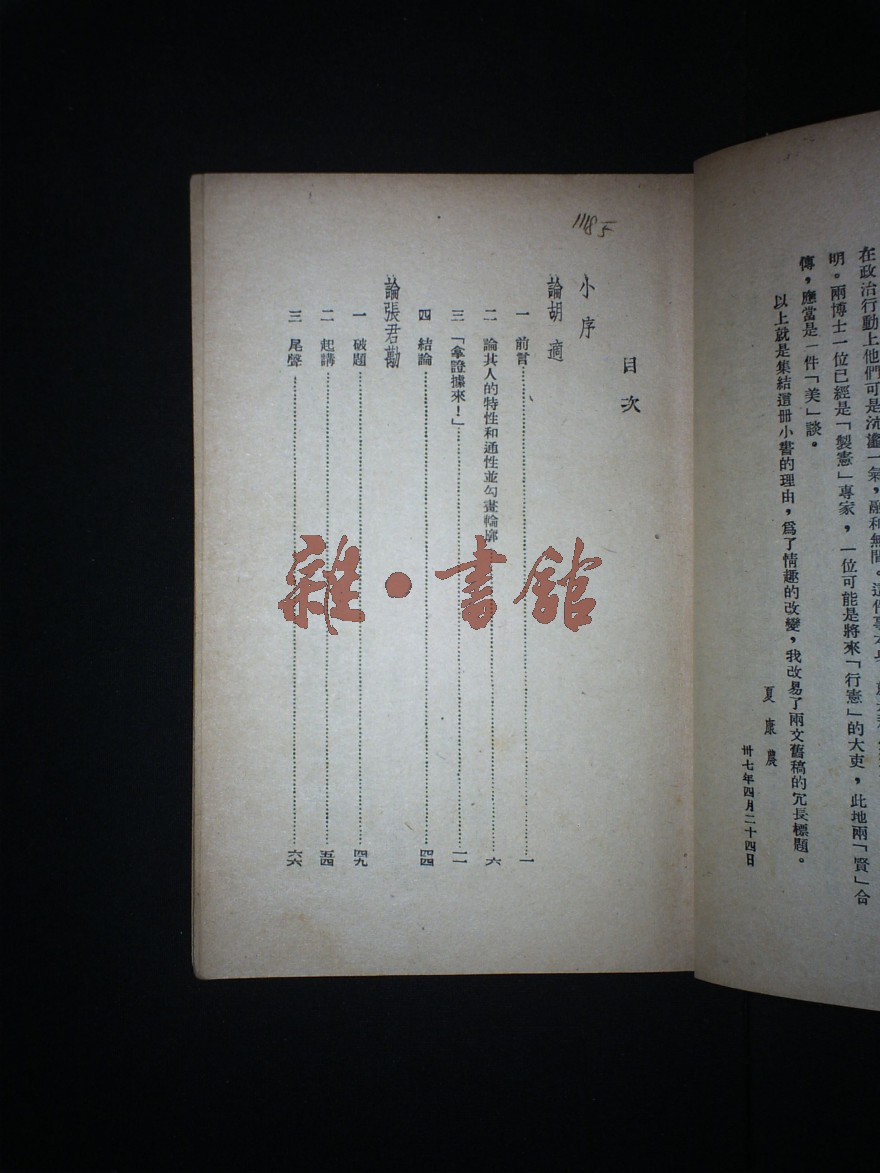 在政治行動上他們可是沆瀣一氣,融和無間。這件事
明。兩博士一位已經是「製憲」專家,一位可能是將來「行憲」的大吏,此地兩「賢」合
傳,應當是一件「美」談。
以上就是集結這冊小書的理由,爲了情趣的改變,我改易了兩文舊稿的冗長標題。
夏康農
卅七年四月二十四日
11185
目次
小序
論胡適
一 前言……一
二 論其人的特性和通性並勾畫輪廓……六
三 「拿證據來!」……一一
四 結論……四四
論張君勱
一 破題……四九
二 起講……五四
三 尾聲……六六
雜·書館